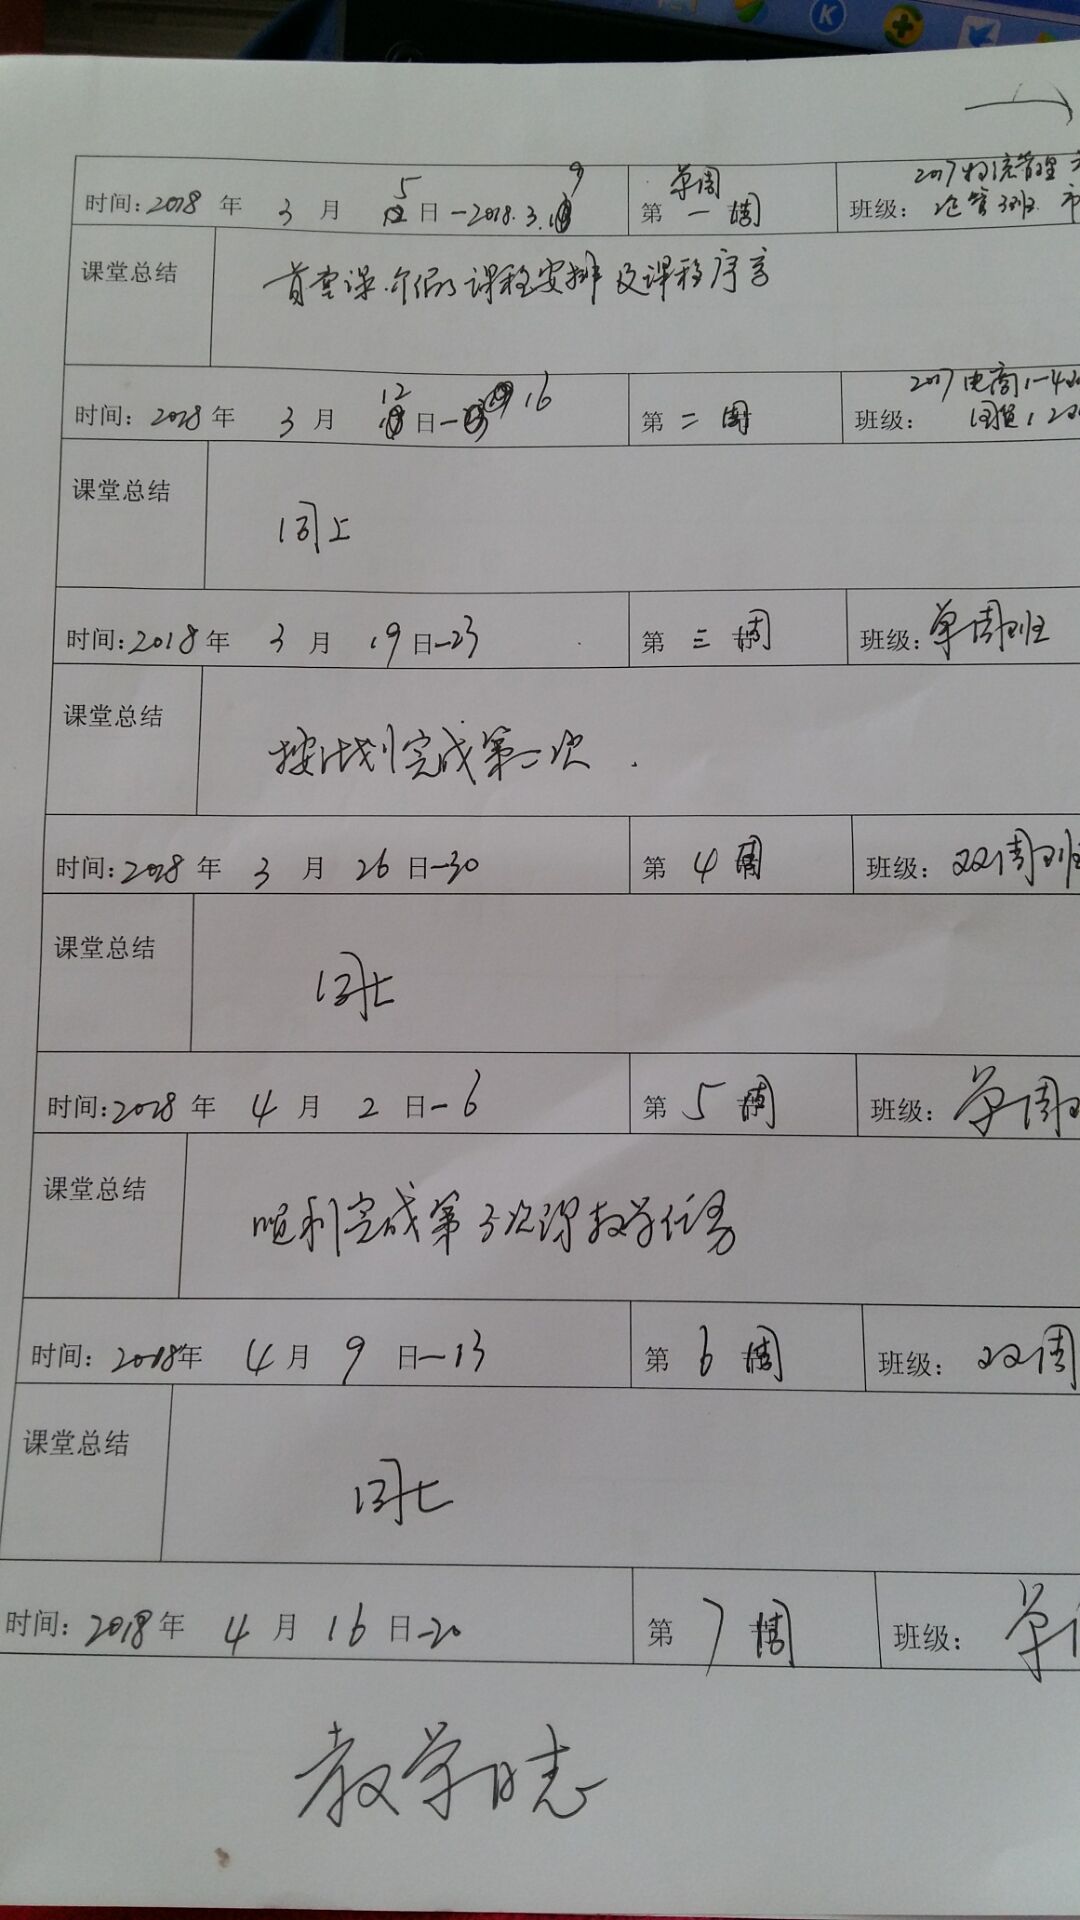 K
单周
时间：2018 年 3 月 5 日 - 2018.3. 9
第 一 周
2017 物流管理
班级： 3班
课堂总结
首堂课介绍课程安排及课程序言
时间：2018 年 3 月 12 日 - 16
第 二 周
2017 电商1-4
班级： 国贸1,2
课堂总结
同上
时间：2018 年 3 月 19 日-23
第 三 周
班级：单周班
课堂总结
按计划完成第二次.
时间：2018 年 3 月 26 日-30
第 4 周
班级：双周班
课堂总结
同上
时间：2018 年 4 月 2 日-6
第 5 周
班级：单周
课堂总结
顺利完成第3次课教学任务
时间：2018年 4 月 9 日-13
第 6 周
班级：双周
课堂总结
同上
时间：2018 年 4 月 16 日-20
第 7 周
班级：单
教学日志